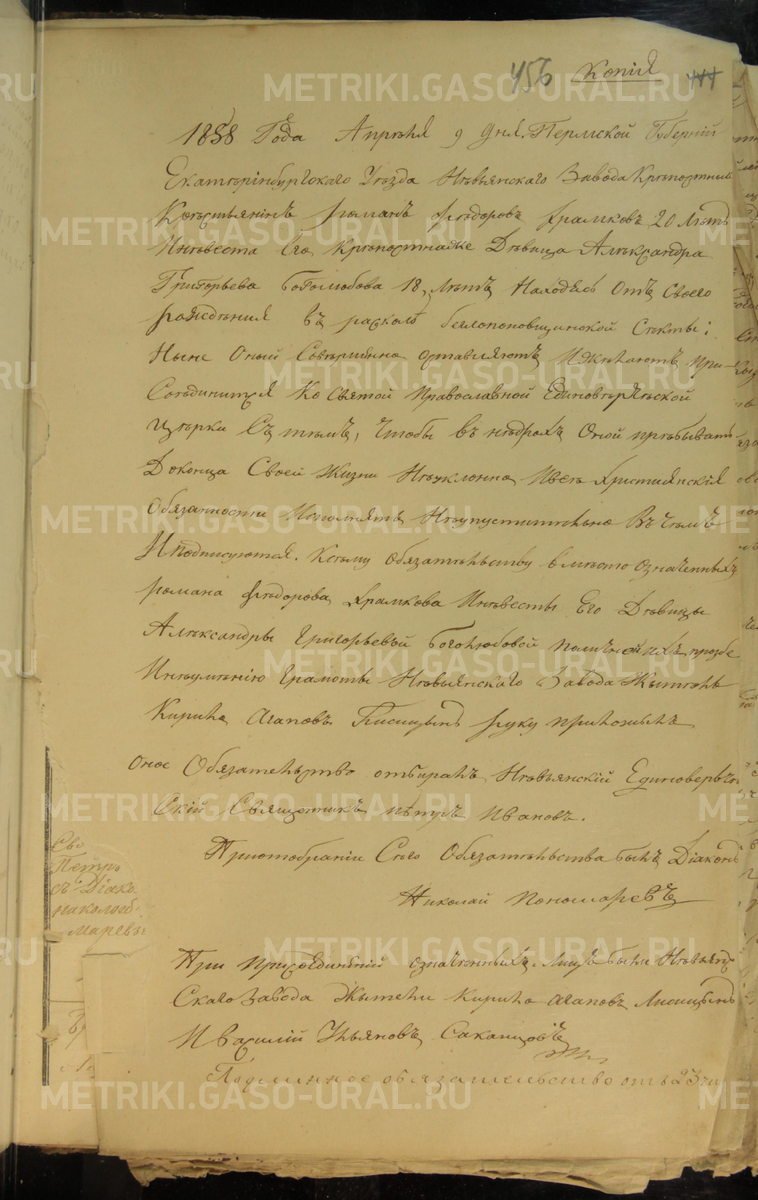 456 Копія
1858 Года Апрѣля 9 дня. Пермской Губерній
Екатерінбургскаго Уѣзда Невьянскаго Завода Крѣпостный
Крестьянинъ Романъ Ѳедоровъ Храмковъ 20 Летъ
Иневеста Его Крѣпостнаяже Дѣвица Александра
Григорьева Боголюбова 18, Летъ Находясь Отъ Своего
рожденія въ расколѣ беглопоповщинской Секты;
Ныне Оный Совершенно оставляютъ Ижелаютъ При-
Соединится Ко Святой Православной Единоверческой
Церкви Съ темъ, Чтобы въ недрахъ Оной пребывать
Доконца Своей Жизни Неуклонно Ивсе Христіянскія
Обязанности Исполнять Неупустительно Въ чемъ
Иподписуются. Ксему Обязательству вместо означенныхъ
Романа Ѳедорова Храмкова Иневесты Его Девицы
Александры Григорьевой Боголюбовой поличной ихъ прозбе
Инеумению Грамоты Невьянскаго Завода Житель
Кирило Агаповъ Лисицынъ Руку приложилъ
Оное Обязательство отбиралъ Невьянскій Единоверче-
Скій Священникъ Петръ Ивановъ.
Приотобраніи Сего Обязательства былъ Діаконъ
Николай Пономаревъ
При Присоединеній означенныхъ Лицъ были Невьян-
Скаго Завода Жители Кирило Агаповъ Лисицынъ
И Василій Ульяновъ
Подлинное обязательство отъ 23
Петръ
съ Діако
METRIKI.GASO-URAL.RU